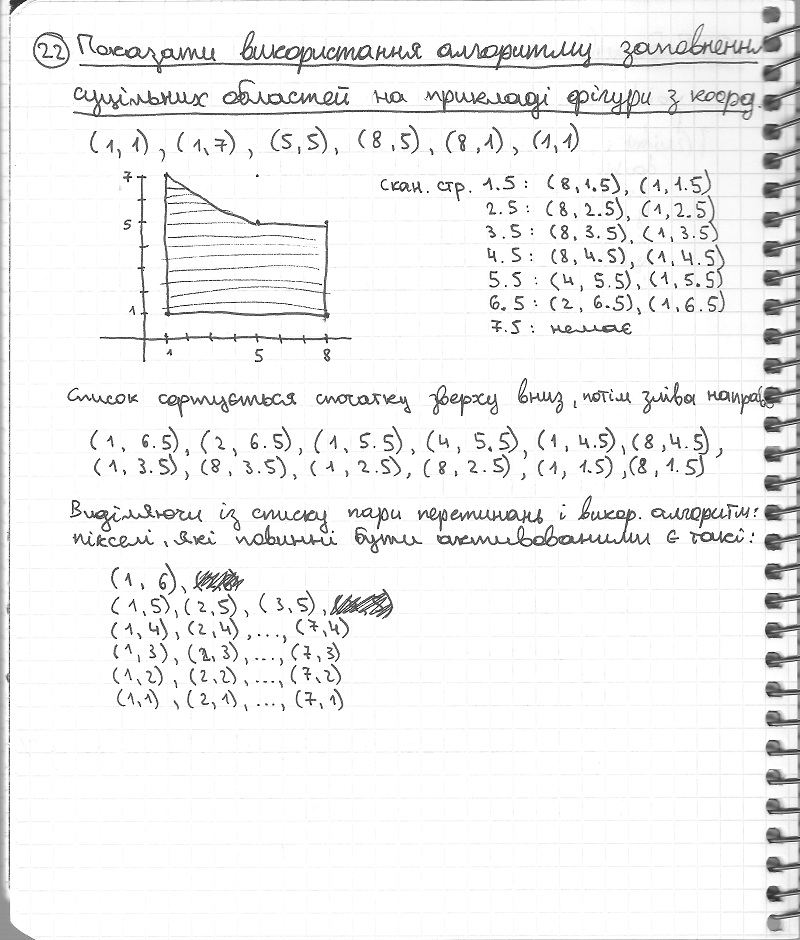 22 Показати використання алгоритму заповнення
суцільних областей на прикладі фігури з коорд.
(1,1), (1,7), (5,5), (8,5), (8,1), (1,1)
7
5
1
1 5 8
скан. стр. 1.5 : (8,1.5), (1,1.5)
2.5 : (8,2.5), (1,2.5)
3.5 : (8,3.5), (1,3.5)
4.5 : (8,4.5), (1,4.5)
5.5 : (4,5.5), (1,5.5)
6.5 : (2,6.5), (1,6.5)
7.5 : немає
Список сортується спочатку зверху вниз, потім зліва направо
(1, 6.5), (2, 6.5), (1, 5.5), (4, 5.5), (1, 4.5), (8,4.5),
(1, 3.5), (8, 3.5), (1, 2.5), (8, 2.5), (1, 1.5), (8, 1.5)
Виділяючи із списку пари перетинань і викор. алгоритм:
пікселі, які повинні бути активованими є такі:
(1, 6),
(1,5), (2,5), (3,5),
(1,4), (2,4), ..., (7,4)
(1,3), (2,3), ..., (7,3)
(1,2), (2,2), ..., (7,2)
(1,1), (2,1), ..., (7,1)